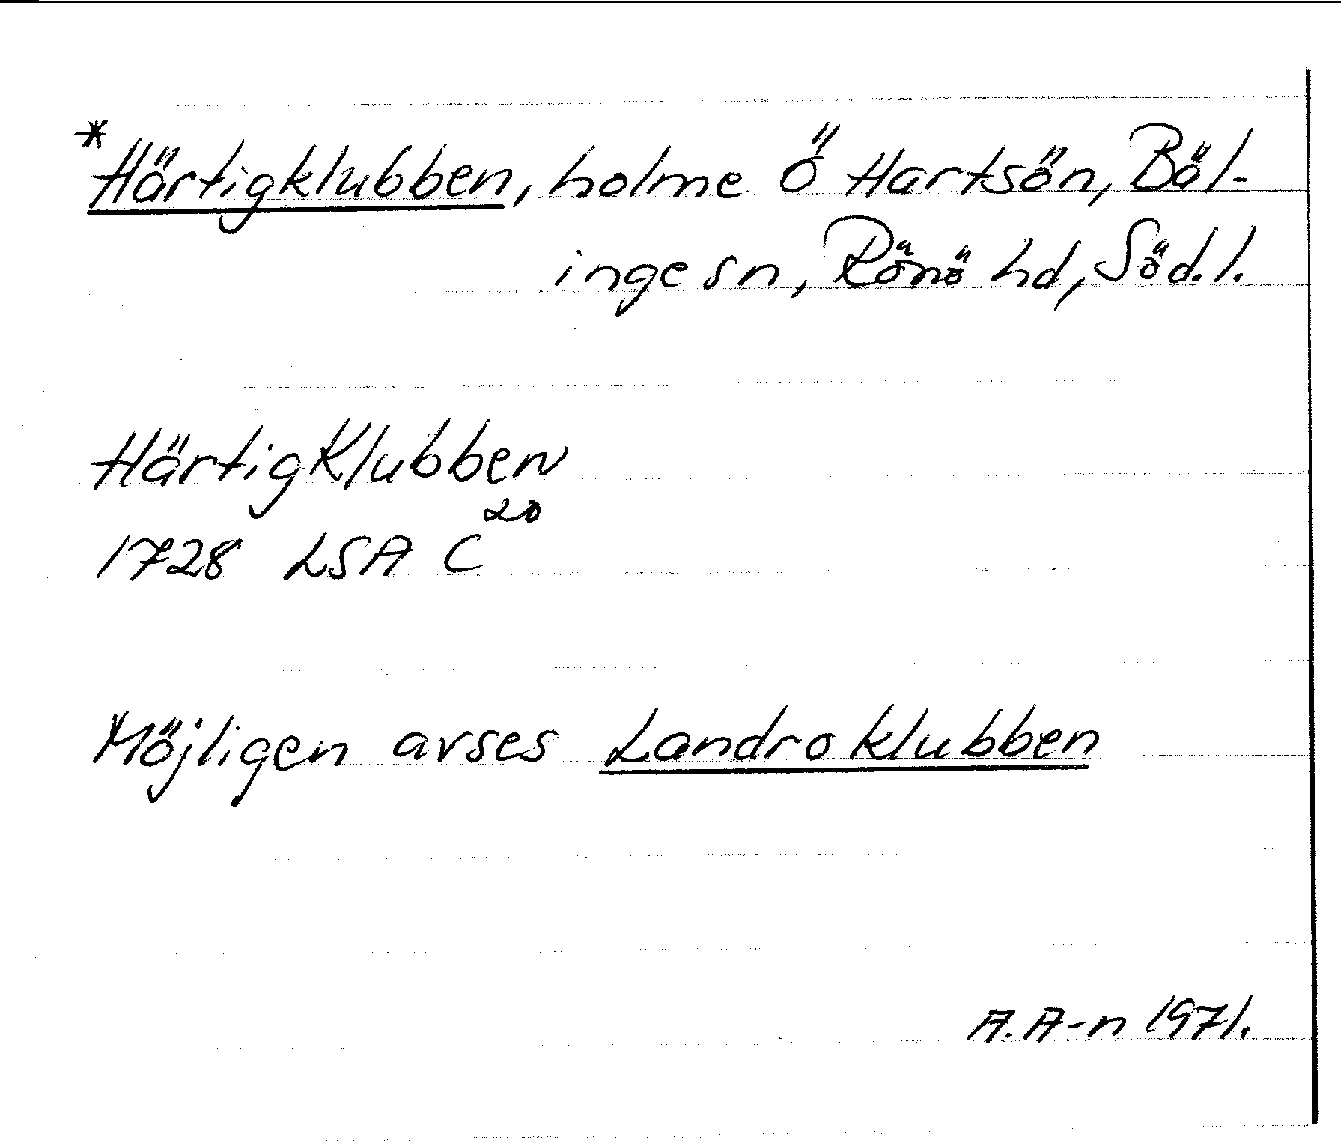 *Härtigklubben, holme Ö Hartsön, Böl-
inge sn, Rönö hd, Söd.l.
HärtigKlubben
1728 LSA C²⁰
Möjligen avses Landroklubben
A.A-n 1971.